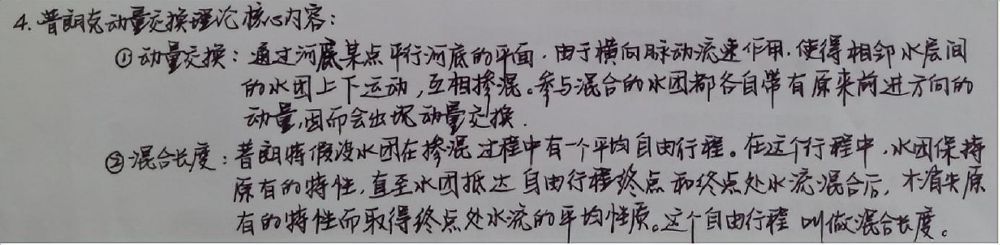 4. 普朗克动量交换理论核心内容：
① 动量交换：通过河底某点平行河底的平面，由于横向脉动流速作用，使得相邻水层间
的水团上下运动，互相掺混。参与混合的水团都各自带有原来前进方向的
动量，因而会出现动量交换．
② 混合长度：普朗特假设水团在掺混过程中有一个平均自由行程。在这个行程中，水团保持
原有的特性，直至水团抵达自由行程终点和终点处水流混合后，才消失原
有的特性而取得终点处水流的平均性质。这个自由行程叫做混合长度。